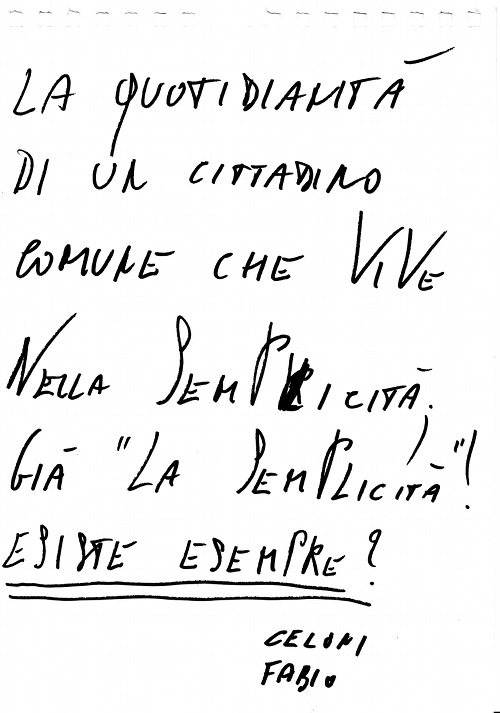 LA QUOTIDIANITÀ
DI UN CITTADINO
COMUNE CHE VIVE
NELLA SEMPLICITÀ.
GIÀ "LA SEMPLICITÀ"!
ESISTE ESEMPRE?
CELONI
FABIO